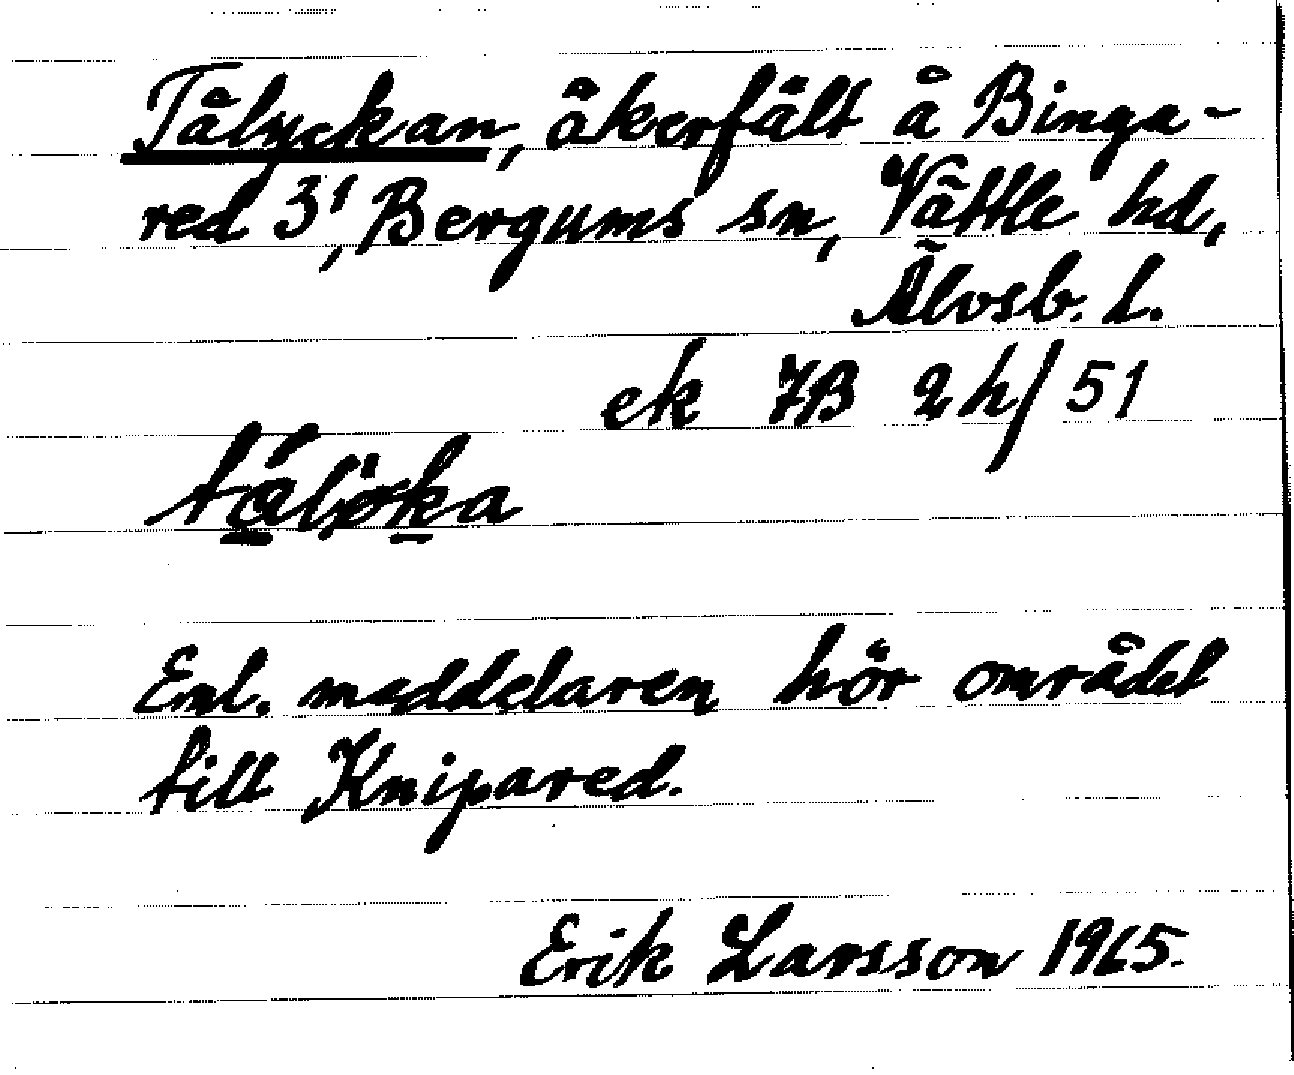 Tålyckan, åkerfält å Binga-
red 3¹, Bergums sn, Vättle hd,
Älvsb. l.
ek 7B 2h/51
Enl. meddelaren hör området
till Knipared.
Erik Larsson 1965.